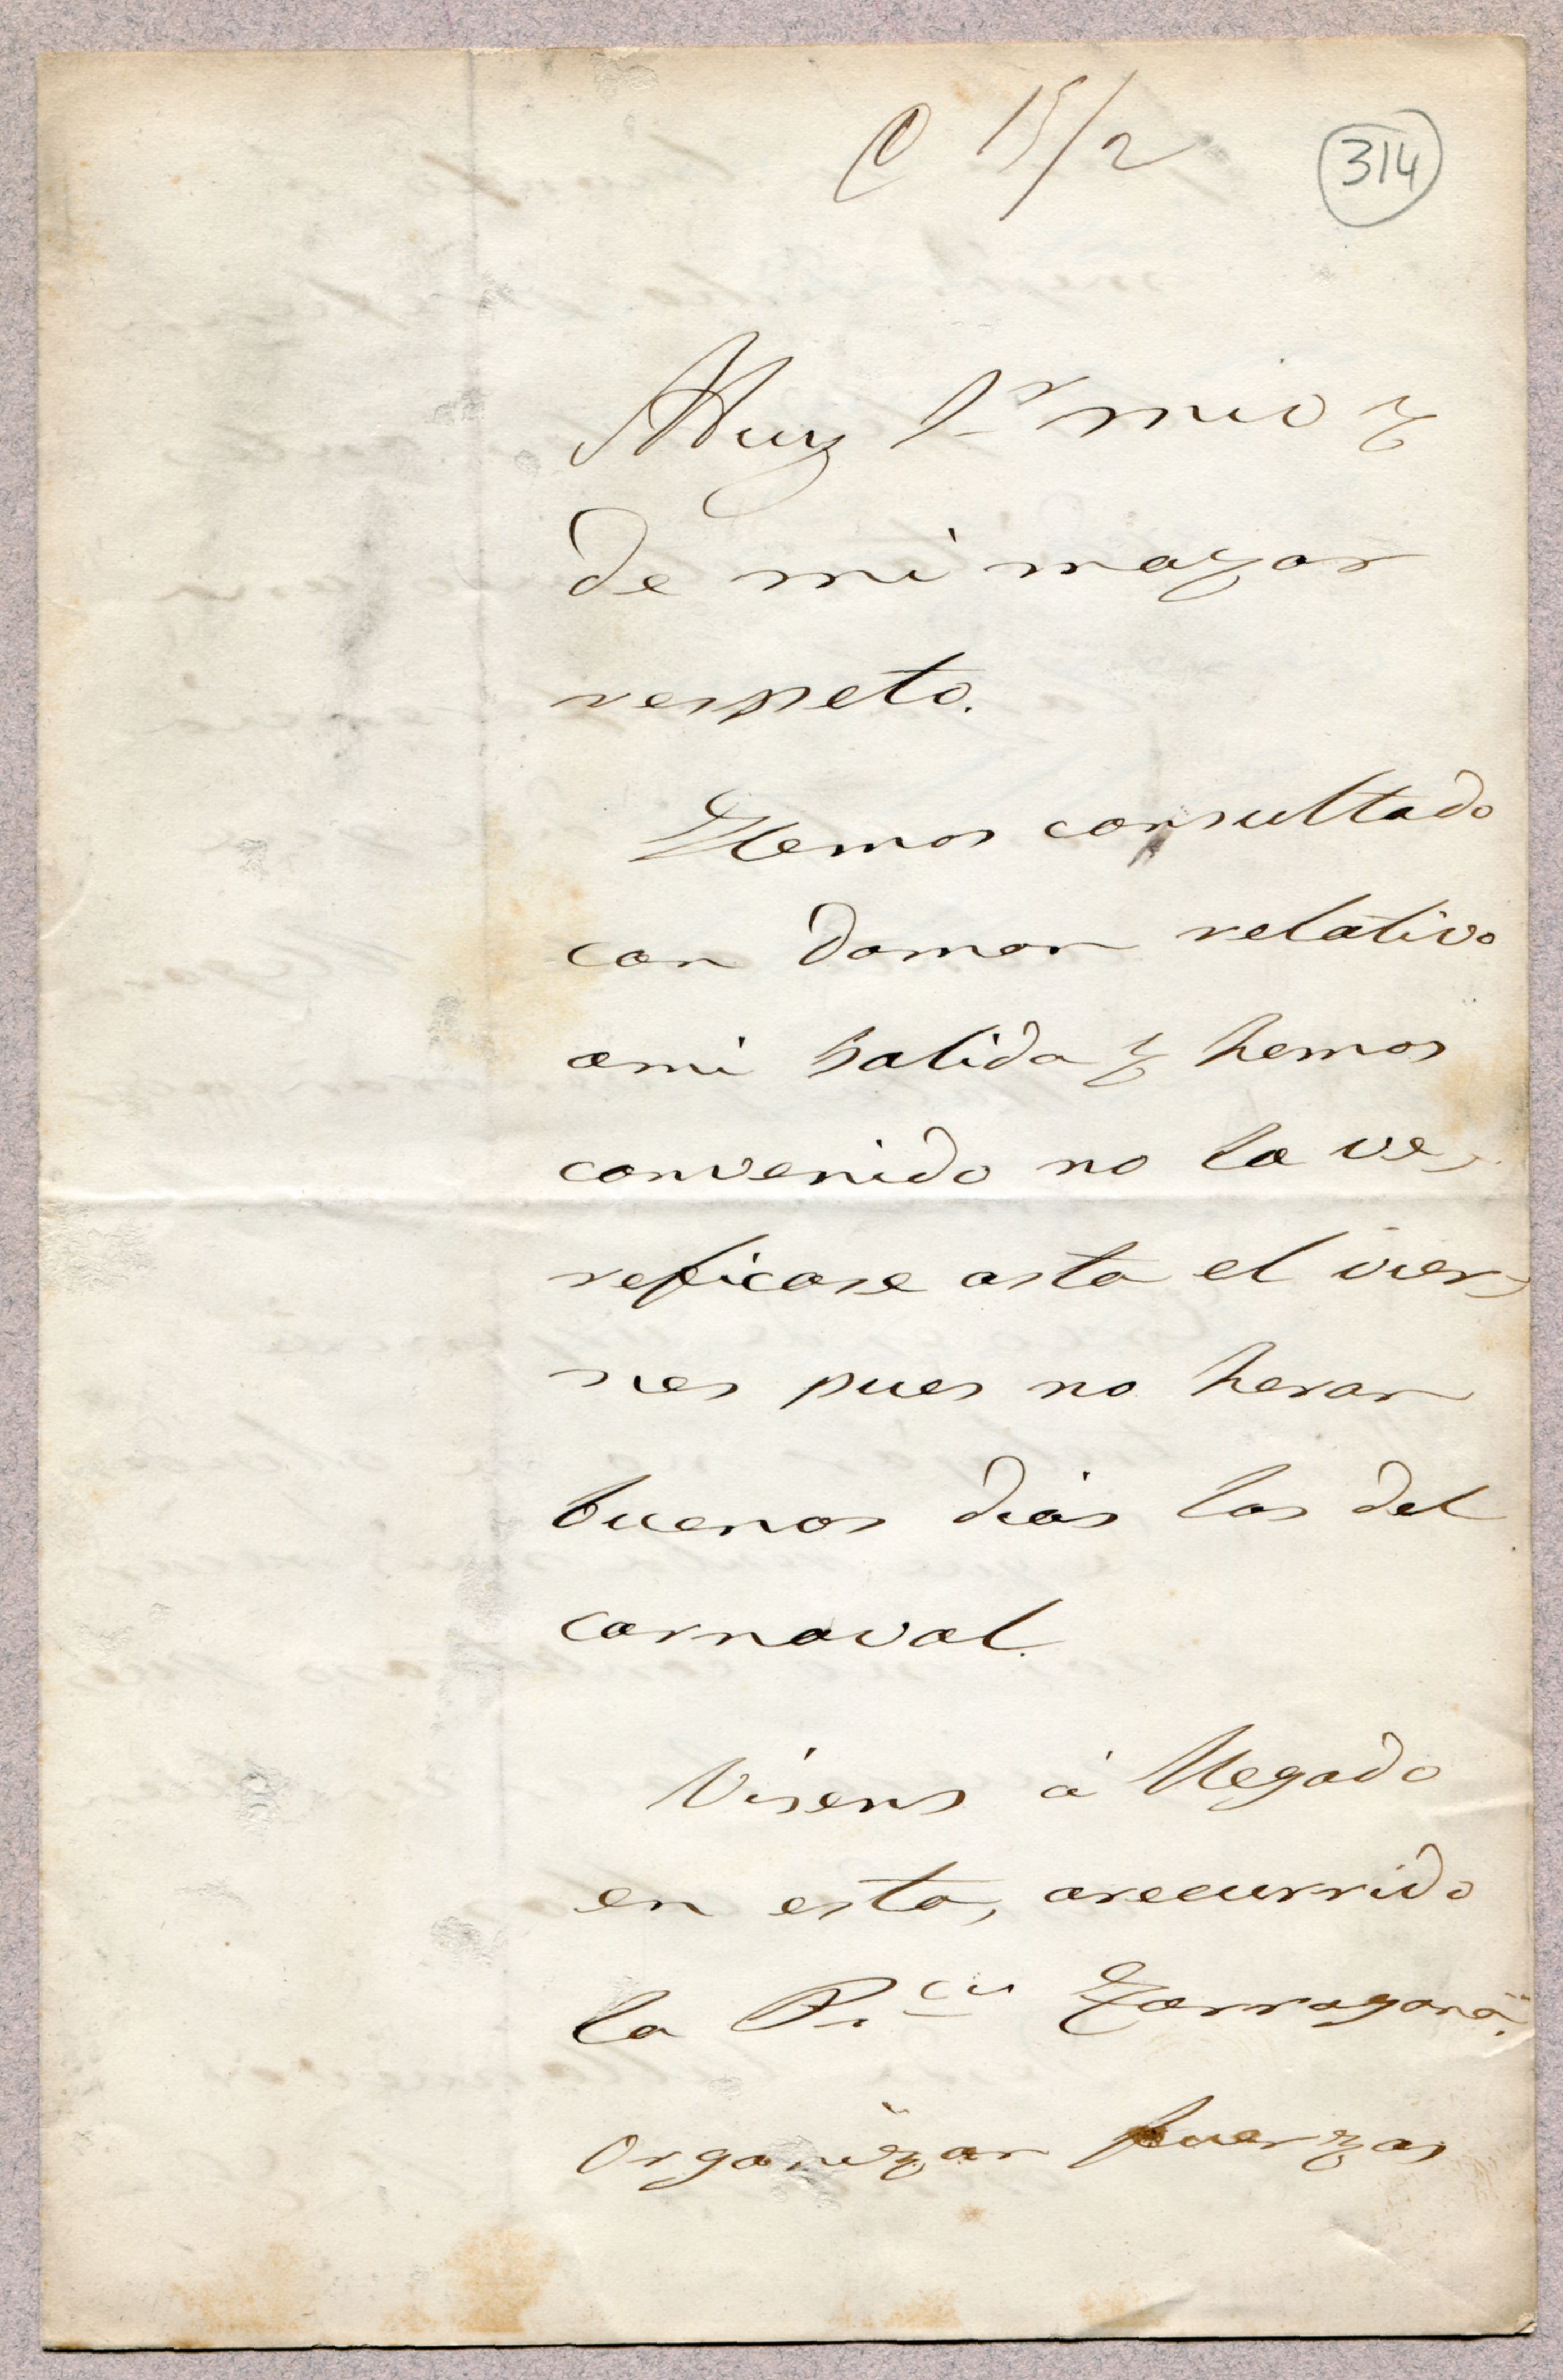 C 15/2
314
Muy Sr mio y
de mi mayor
respeto.
Hemos consultado
con Daman relativo
ami salida y hemos
convenido no la ve-
reficase asta el vier-
nes pues no heran
buenos dias los del
carnaval.
Visens á llegado
en esta, arecurrido
la Pr cia Tarragona.
organizar fuerzas